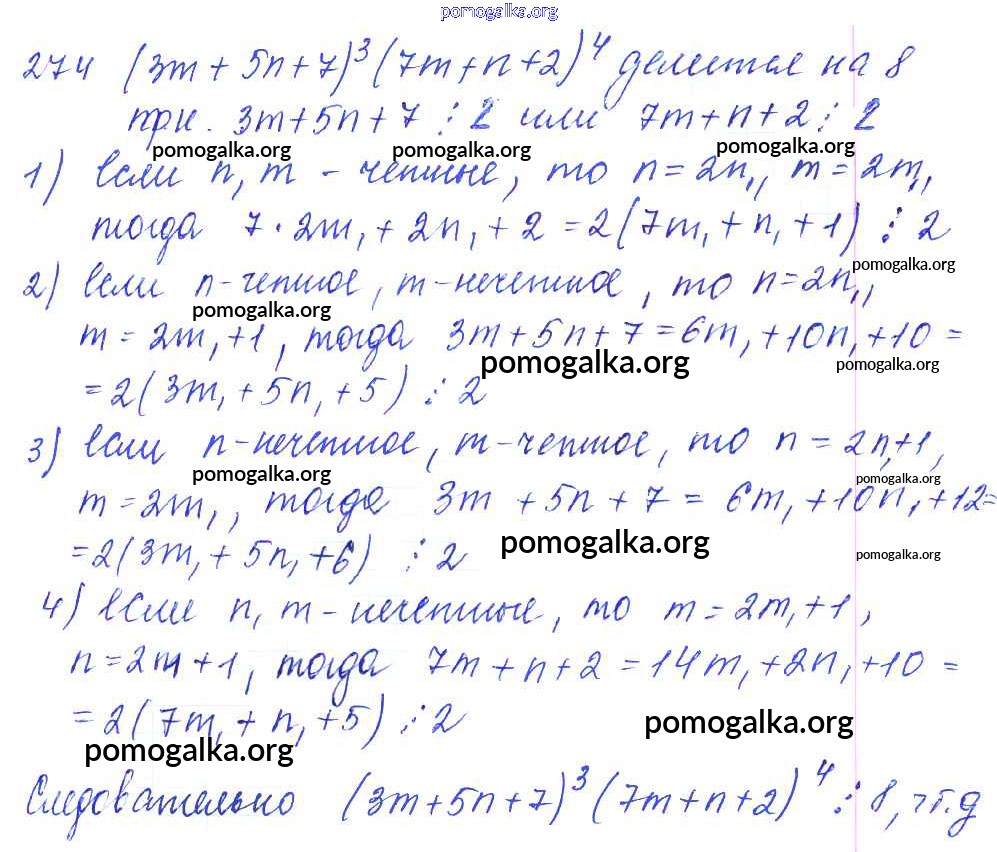 pomogalka.org
274 (3m + 5n + 7)³ (7m + n + 2)⁴ делится на 8
при. 3m + 5n + 7 ⋮ 2 или 7m + n + 2 ⋮ 2
pomogalka.org pomogalka.org pomogalka.org
1) если n, m - четные, то n = 2n₁, m = 2m₁,
тогда 7 · 2m₁ + 2n₁ + 2 = 2(7m₁ + n₁ + 1) ⋮ 2
pomogalka.org
2) если n - четное, m - нечетное, то n = 2n₁,
pomogalka.org
m = 2m₁ + 1, тогда 3m + 5n + 7 = 6m₁ + 10n₁ + 10 =
pomogalka.org pomogalka.org
= 2(3m₁ + 5n₁ + 5) ⋮ 2
3) если n - нечетное, m - четное, то n = 2n₁ + 1,
pomogalka.org pomogalka.org
m = 2m₁, тогда 3m + 5n + 7 = 6m₁ + 10n₁ + 12 =
pomogalka.org
= 2(3m₁ + 5n₁ + 6) ⋮ 2
pomogalka.org
4) если n, m - нечетные, то m = 2m₁ + 1,
n = 2m + 1, тогда 7m + n + 2 = 14m₁ + 2n₁ + 10 =
= 2(7m₁ + n₁ + 5) ⋮ 2
pomogalka.org
pomogalka.org
Следовательно (3m + 5n + 7)³ (7m + n + 2)⁴ ⋮ 8, чт.д